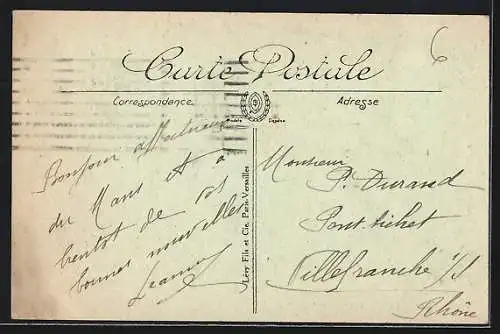 Carte Postale
Correspondance
Adresse
6
Bonjour affectueux
du Mans et à
bientôt de vos
bonnes nouvelles
Jeanne
Lévy Fils et Cie, Paris-Versailles
Monsieur
P. Durand
Pont
Villefranche s/S
Rhône